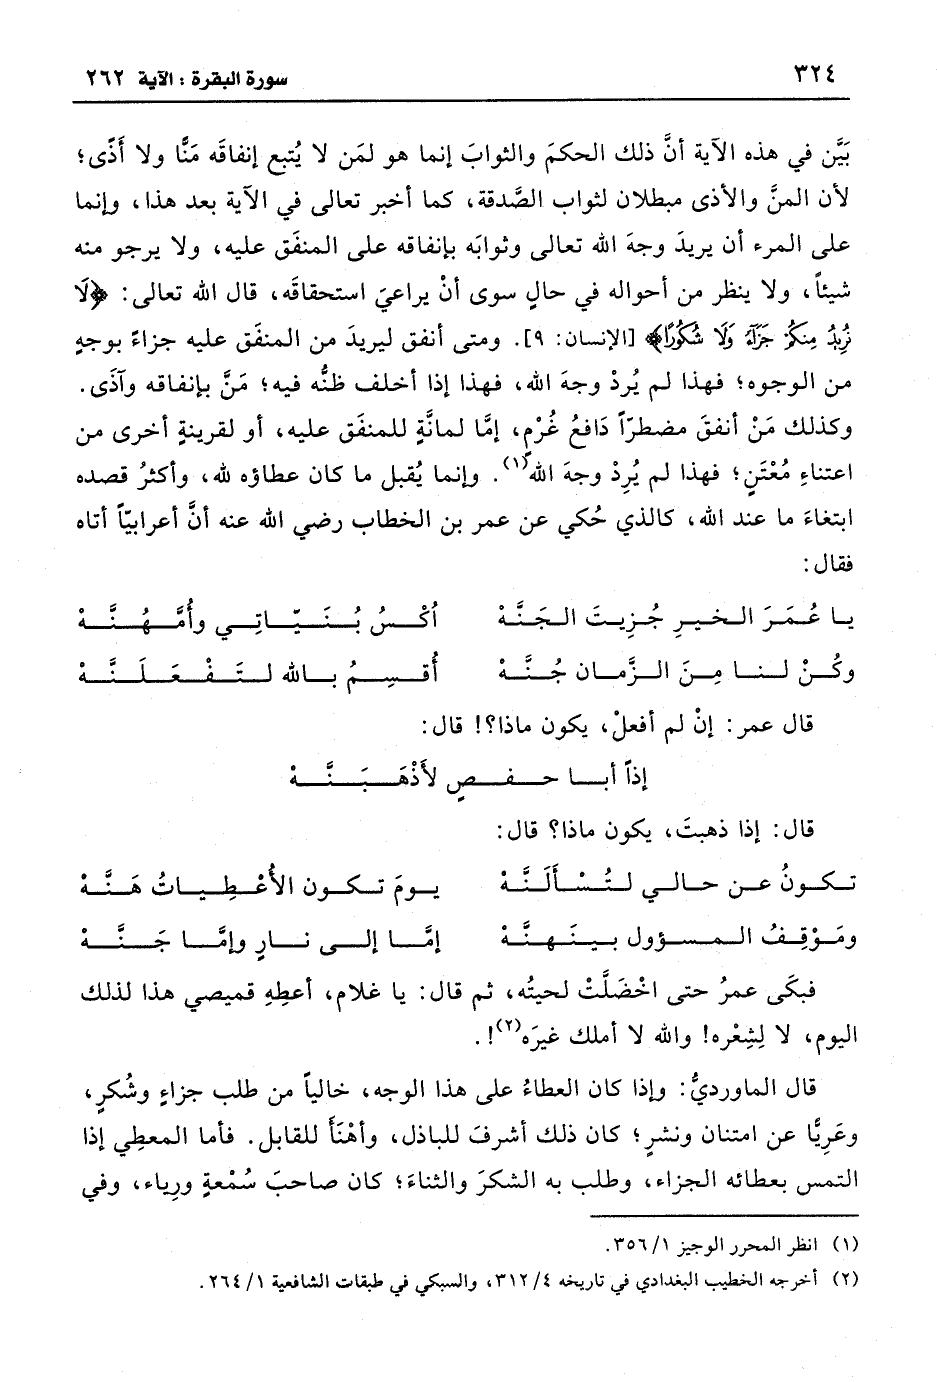 ٣٢٤
سورة البقرة : الآية ٢٦٢
بَيَّن في هذه الآية أنَّ ذلك الحكمَ والثوابَ إنما هو لمَن لا يُتبع إنفاقَه مَنًّا ولا أَذًى؛
لأن المنَّ والأذى مبطلان لثواب الصَّدقة، كما أخبر تعالى في الآية بعد هذا، وإنما
على المرء أن يريدَ وجهَ الله تعالى وثوابَه بإنفاقه على المنفَق عليه، ولا يرجو منه
شيئاً، ولا ينظر من أحواله في حالٍ سوى أنْ يراعيَ استحقاقَه، قال الله تعالى: ﴿لَا
نُرِيدُ مِنكُمْ جَزَآءً وَلَا شُكُورًا﴾ [الإنسان: ٩]. ومتى أنفق ليريدَ من المنفَق عليه جزاءً بوجهٍ
من الوجوه؛ فهذا لم يُردْ وجهَ الله، فهذا إذا أخلف ظنُّه فيه؛ مَنَّ بإنفاقه وآذَى.
وكذلك مَنْ أنفقَ مضطرّاً دَافعُ غُرْمٍ، إمَّا لمانَّةٍ للمنفَق عليه، أو لقرينةٍ أخرى من
اعتناءِ مُعْتَنٍ؛ فهذا لم يُرِدْ وجهَ الله(١). وإنما يُقبل ما كان عطاؤه لله، وأكثرُ قصده
ابتغاءَ ما عند الله، كالذي حُكي عن عمر بن الخطاب رضي الله عنه أنَّ أعرابيّاً أتاه
فقال:
يا عُمَرَ الخيرِ جُزِيتَ الجَنَّهْ أُكْسُ بُنَيَّاتِي وأُمَّهُنَّهْ
وكُنْ لنا مِنَ الزَّمان جُنَّهْ أُقسِمُ بالله لتَفْعَلَنَّهْ
قال عمر: إنْ لم أفعلْ، يكون ماذا؟! قال:
إذاً أبا حفصٍ لأَذْهَبَنَّهْ
قال: إذا ذهبتَ، يكون ماذا؟ قال:
تكونُ عن حالي لتُسْأَلَنَّهْ يومَ تكون الأُعْطِياتُ هَنَّهْ
ومَوْقِفُ المسؤول بينَهنَّهْ إمَّا إلى نارٍ وإمَّا جَنَّهْ
فبكَى عمرُ حتى اخْضَلَّتْ لحيتُه، ثم قال: يا غلام، أعطِهِ قميصي هذا لذلك
اليوم، لا لِشِعْره! والله لا أملك غيرَه(٢)!.
قال الماورديُّ: وإذا كان العطاءُ على هذا الوجه، خالياً من طلب جزاءٍ وشُكرٍ،
وعَرِيًّا عن امتنان ونشرٍ؛ كان ذلك أشرفَ للباذل، وأهْنَأَ للقابل. فأما المعطِي إذا
التمس بعطائه الجزاء، وطلب به الشكرَ والثناءَ؛ كان صاحبَ سُمْعةٍ ورِياء، وفي
(١) انظر المحرر الوجيز ١/ ٣٥٦.
(٢) أخرجه الخطيب البغدادي في تاريخه ٤/ ٣١٢، والسبكي في طبقات الشافعية ١/ ٢٦٤.